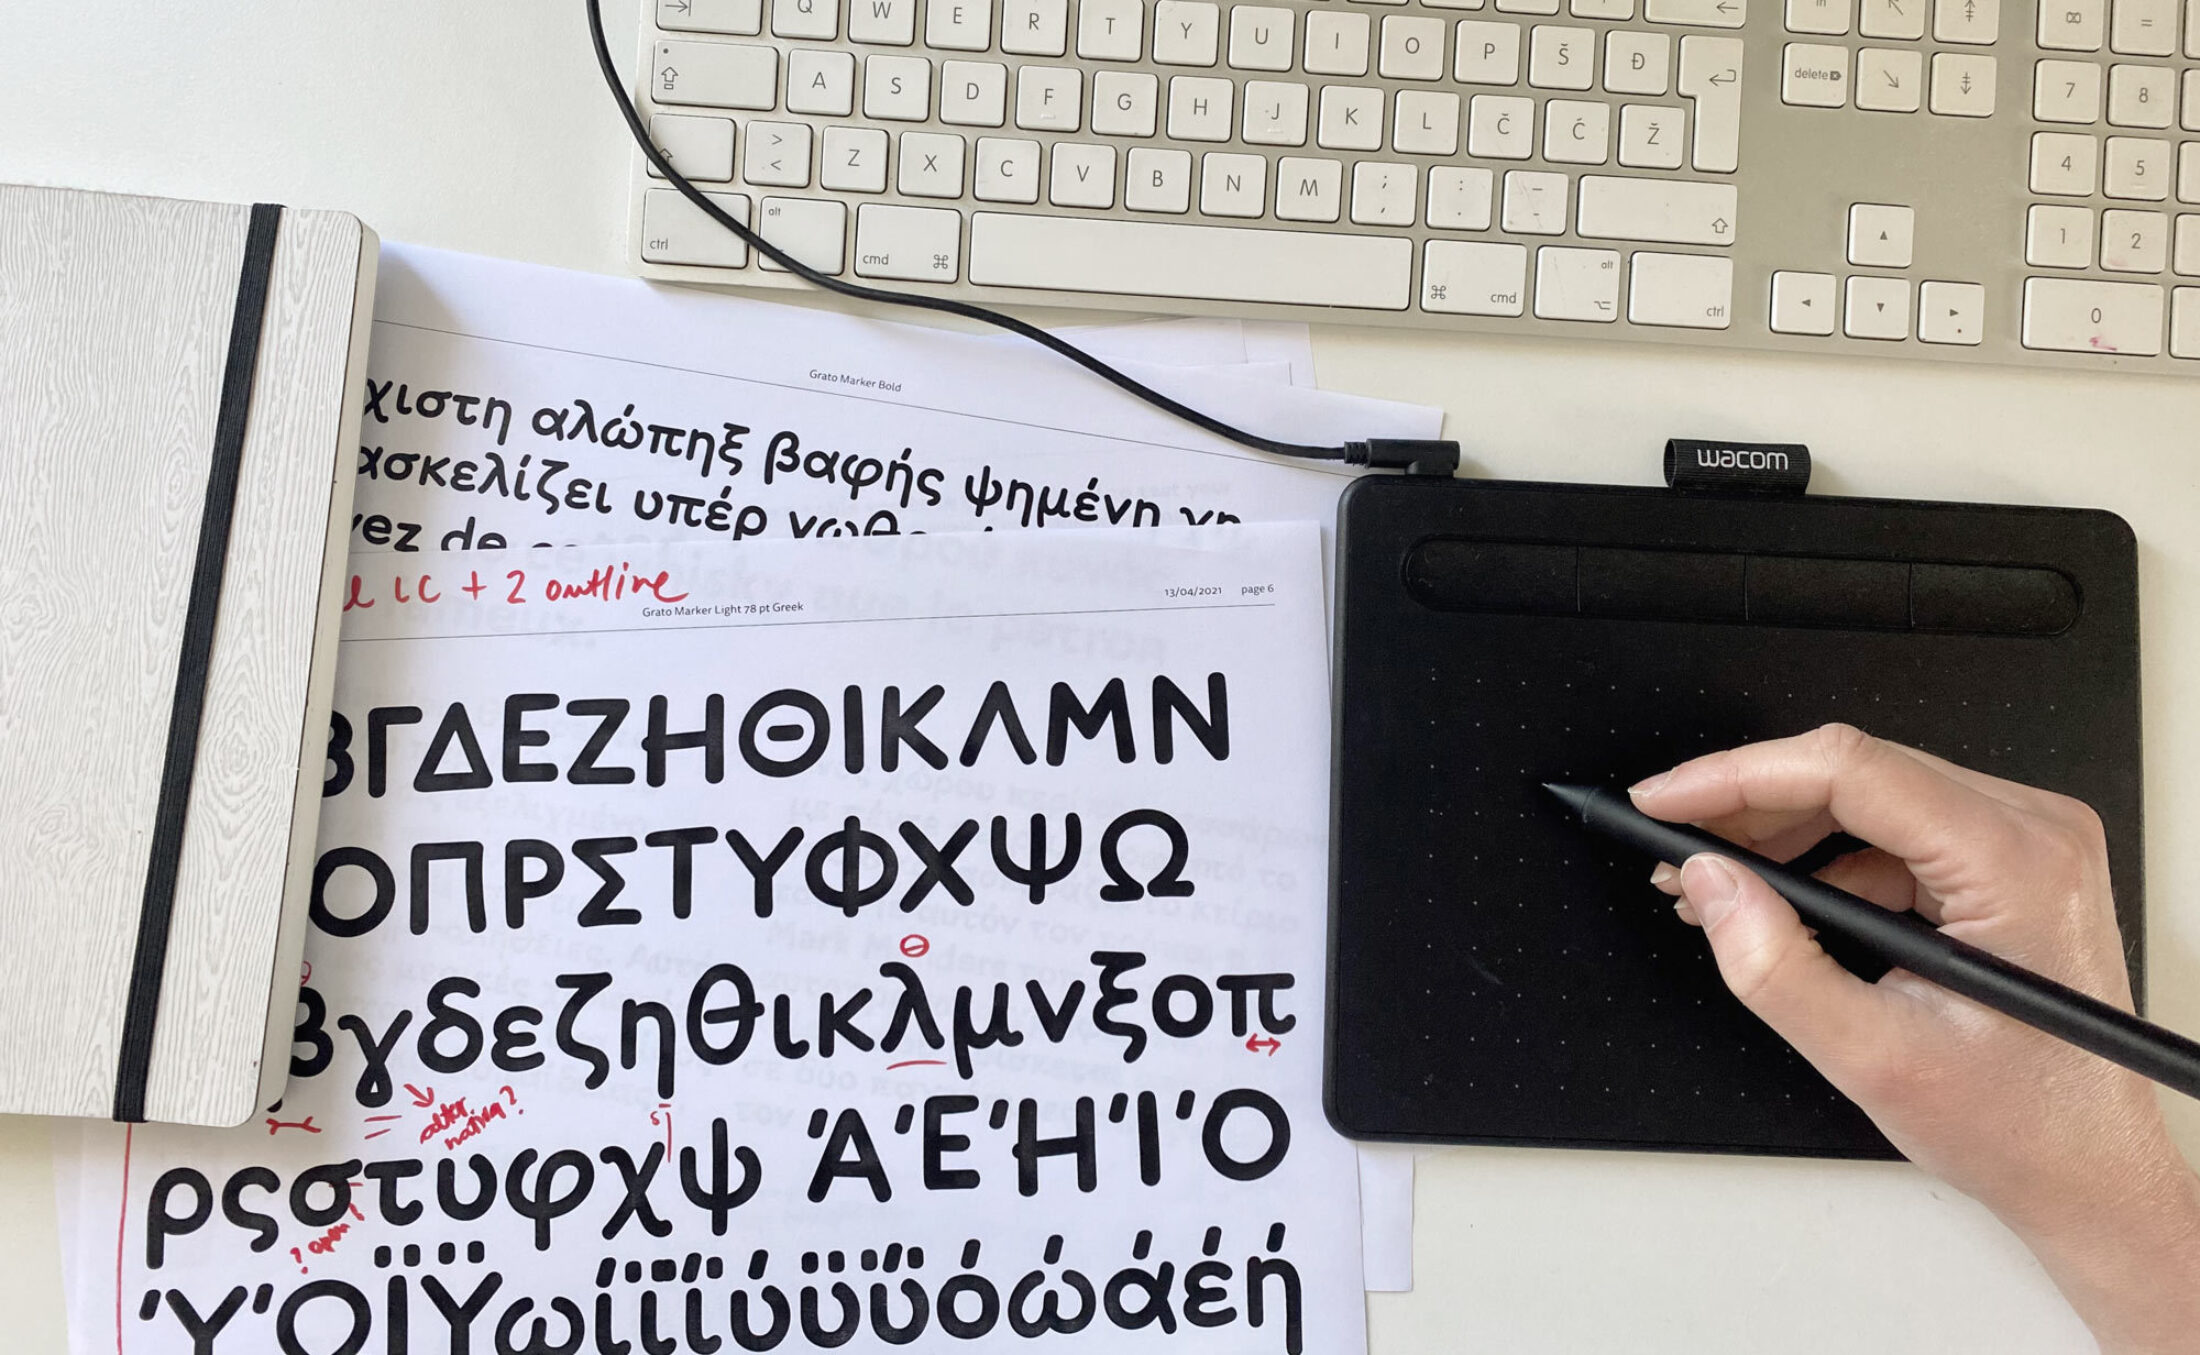 Q W E R T Y U I O P Š Đ
A S D F G H J K L Č Ć Ž
> < Z X C V B N M ; , : . – -
ctrl alt cmd ⌘ ⌘ cmd alt ⌥ ctrl
delete
7 8
4 5
1 2
0
=
Grato Marker Bold
χιστη αλώπηξ βαφής ψημένη
ασκελίζει υπέρ
vez de
lc + 2 outline
Grato Marker Light 78 pt Greek
13/04/2021 page 6
ΒΓΔΕΖΗΘΙΚΛΜΝ
ΟΠΡΣΤΥΦΧΨΩ
βγδεζηθικλμνξοπ
alter
native?
ρςστυφχψ ΆΈΉΊΌ
? open
ΎΌΪΫωίϊΐύϋΰόώάέή
wacom